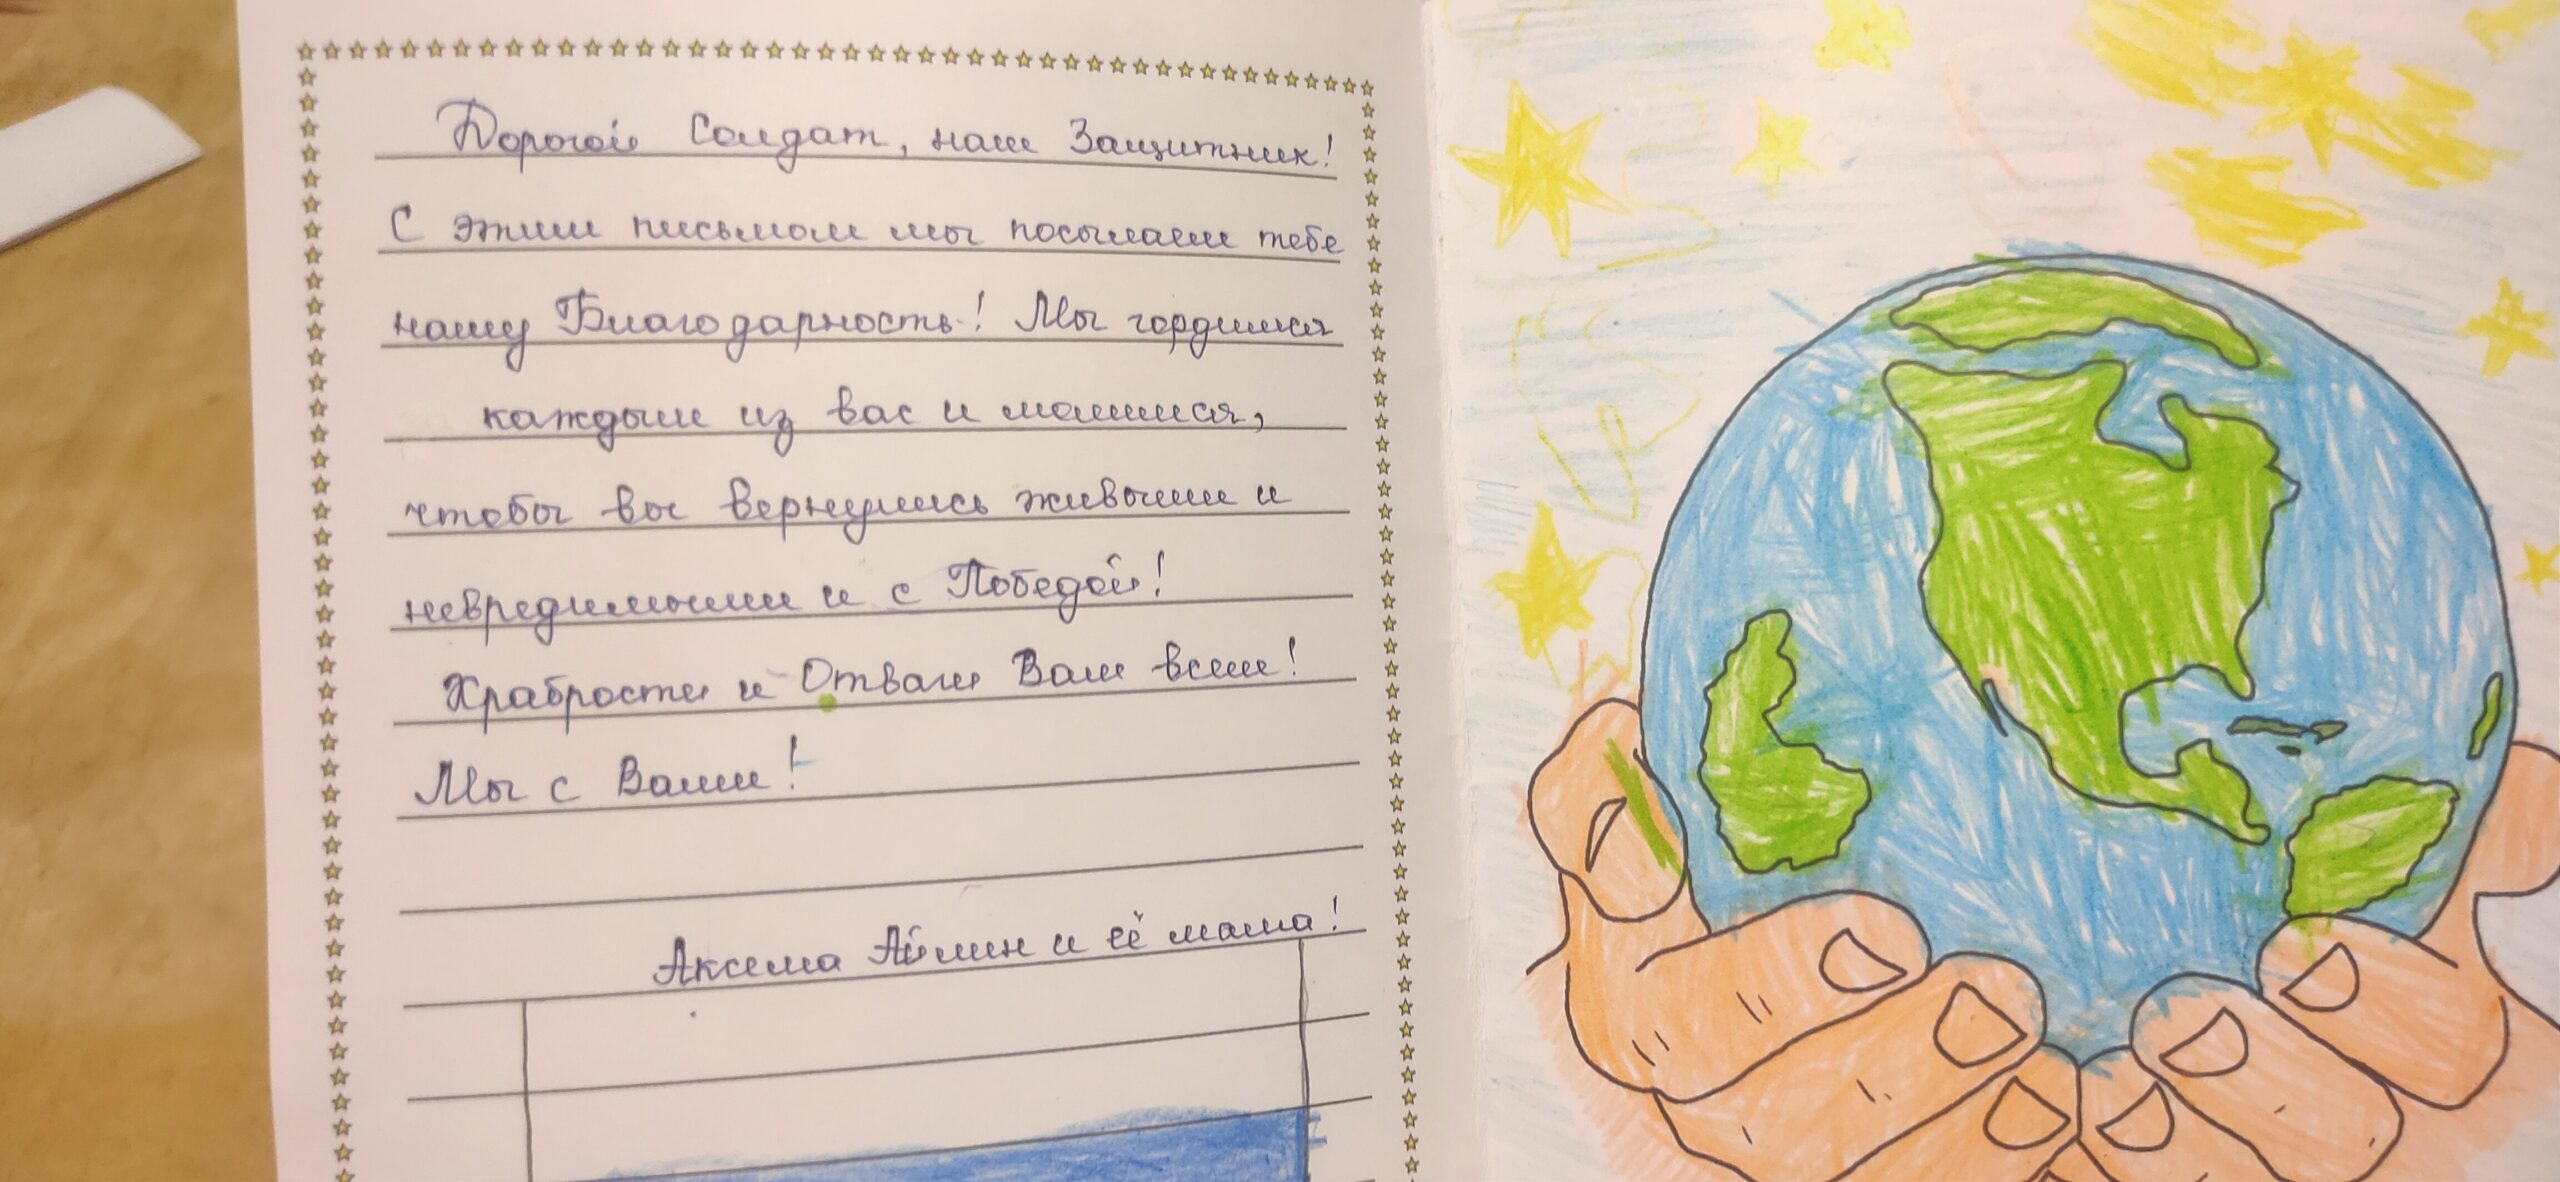 Дорогой Солдат, наш Защитник!
С этим письмом мы посылаем тебе
нашу Благодарность! Мы гордимся
каждым из вас и молимся,
чтобы вы вернулись живыми и
невредимыми и с Победой!
Храбрости и Отваги Вам всем!
Мы с Вами!
Аксёма Айлин и её мама!